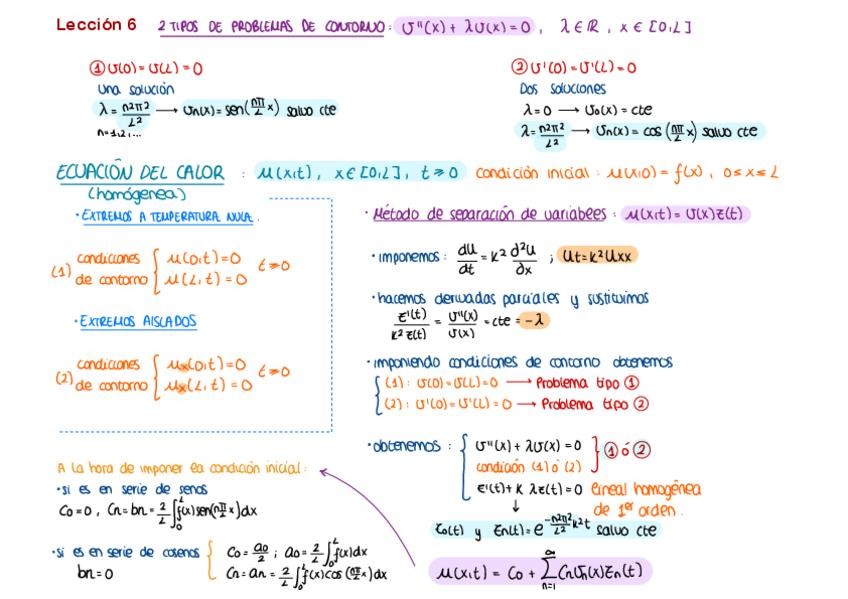 Lección 6 2 TIPOS DE PROBLEMAS DE CONTORNO: v''(x) + λv(x) = 0, λ ∈ ℝ, x ∈ [0,L]
① v(0) = v(L) = 0
Una solución
λ = n²π²/L² → vn(x) = sen(nπ/L x) salvo cte
n=1,2,...
② v'(0) = v'(L) = 0
Dos soluciones
λ = 0 → v₀(x) = cte
λ = n²π²/L² → vn(x) = cos(nπ/L x) salvo cte
ECUACIÓN DEL CALOR : u(x,t), x ∈ [0,L], t ≥ 0 condición inicial: u(x,0) = f(x), 0 ≤ x ≤ L
(homógenea)
· EXTREMOS A TEMPERATURA NULA.
(1) condiciones de contorno { u(0,t) = 0
u(L,t) = 0 t ≥ 0
· EXTREMOS AISLADOS
(2) condiciones de contorno { ux(0,t) = 0
ux(L,t) = 0 t ≥ 0
· Método de separación de variables: u(x,t) = v(x)z(t)
· imponemos: du/dt = k² d²u/dx ; ut = k² uxx
· hacemos derivadas parciales y sustituimos
z'(t)/k² z(t) = v''(x)/v(x) = cte = -λ
· imponiendo condiciones de contorno obtenemos
{ (1): v(0) = v(L) = 0 → Problema tipo ①
(2): v'(0) = v'(L) = 0 → Problema tipo ②
· obtenemos: { v''(x) + λv(x) = 0
condición (1) ó (2) } ① ó ②
z'(t) + k λz(t) = 0 lineal homogénea
↓ de 1er orden.
z₀(t) y zn(t) = e^(-n²π²/L² k² t) salvo cte
u(x,t) = C₀ + ∞∑n=1 Cn vn(x) zn(t)
A la hora de imponer la condición inicial:
· si es en serie de senos
C₀ = 0, Cn = bn = 2/L ∫₀ᴸ f(x) sen(nπ/L x) dx
· si es en serie de cosenos { C₀ = a₀/2 ; a₀ = 2/L ∫₀ᴸ f(x) dx
bn = 0 Cn = an = 2/L ∫₀ᴸ f(x) cos(nπ/L x) dx